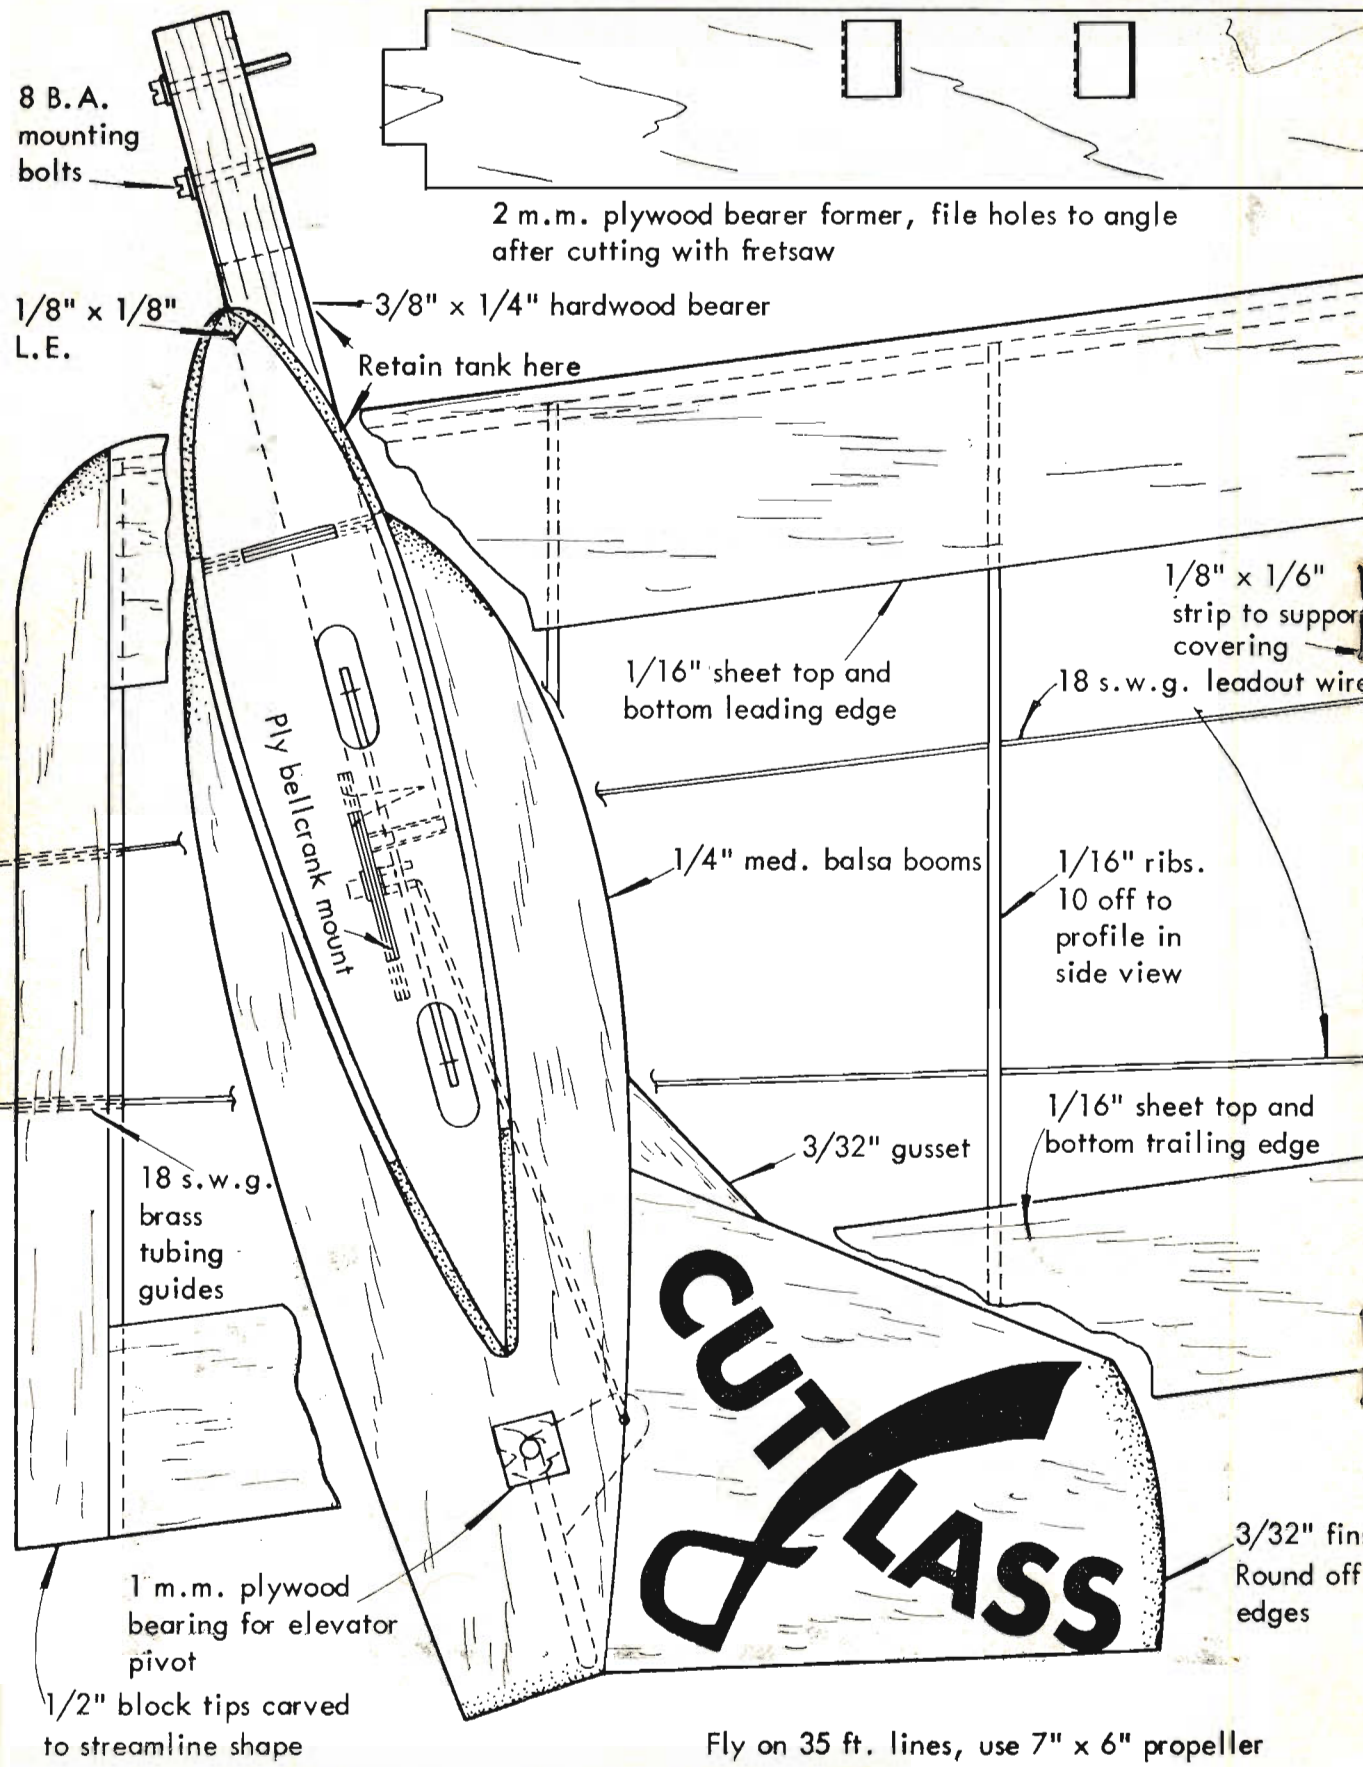 8 B.A.
mounting
bolts
2 m.m. plywood bearer former, file holes to angle
after cutting with fretsaw
1/8" x 1/8"
L.E.
3/8" x 1/4" hardwood bearer
Retain tank here
1/8" x 1/6"
strip to suppor
covering
18 s.w.g. leadout wire
1/16" sheet top and
bottom leading edge
Ply bellcrank mount
1/4" med. balsa booms
1/16" ribs.
10 off to
profile in
side view
1/16" sheet top and
bottom trailing edge
3/32" gusset
18 s.w.g.
brass
tubing
guides
CUT
LASS
3/32" fin
Round off
edges
1 m.m. plywood
bearing for elevator
pivot
1/2" block tips carved
to streamline shape
Fly on 35 ft. lines, use 7" x 6" propeller